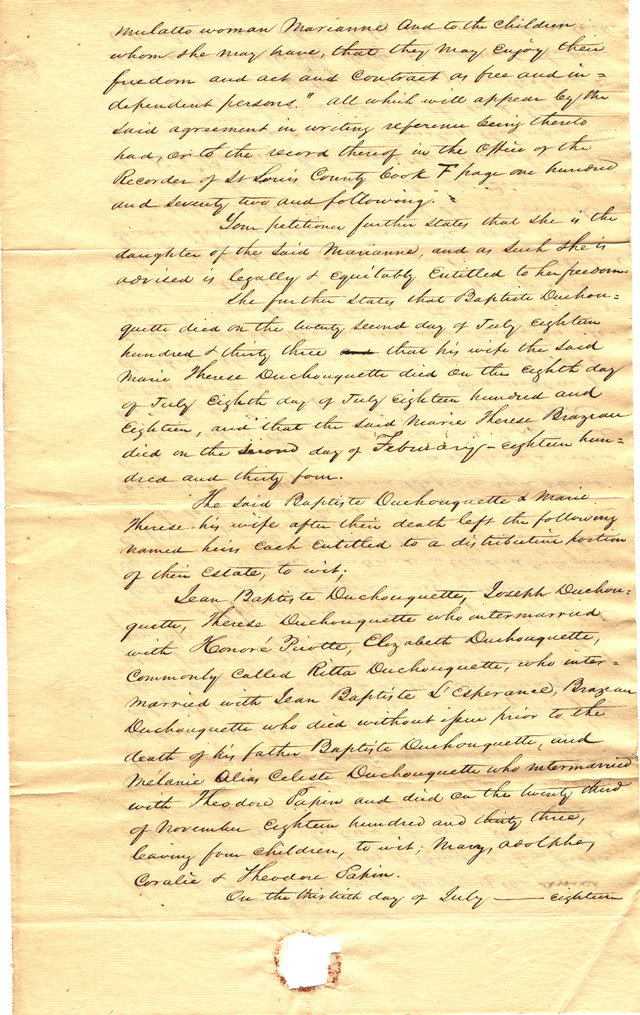 mulatto woman Marianne and to the children
whom she may have, that they may enjoy their
freedom and act and contract as free and in=
dependent persons." all which will appear by the
said agreement in writing reference being thereto
had, or to the record thereof in the office of the
Recorder of St Louis County Book F page one hundred
and seventy two and following.
Your petitioner further states that she is the
daughter of the said Marianne, and as such she is
advised is legally & equitably entitled to her freedom
She further states that Baptiste Duchou-
quette died on the twenty second day of July eighteen
hundred & thirty three and that his wife the said
Marie Therese Duchouquette died on the eighth day
of July eighth day of July eighteen hundred and
eighteen, and that the said Marie Therese Brazeau
died on the second day of February - eighteen hun=
dred and thirty four.
The said Baptiste Duchouquette & Marie
Therese his wife after their death left the following
named heirs each entitled to a distributive portion
of their estate, to wit;
Jean Baptiste Duchouquette, Joseph Duchou-
quette, Therese Duchouquette who intermarried
with Honoré Picotte, Elizabeth Duchouquette,
commonly called Ritta Duchouquette, who inter-
married with Jean Baptiste L'Esperance, Brazeau
Duchouquette who died without issue prior to the
death of his father Baptiste Duchouquette, and
Melanie alias Celeste Duchouquette who intermarried
with Theodore Papin and died on the twenty third
of November eighteen hundred and thirty three,
leaving four children, to wit; Mary, Adolphe,
Coralie & Theodore Papin.
On the thirtieth day of July —— eighteen